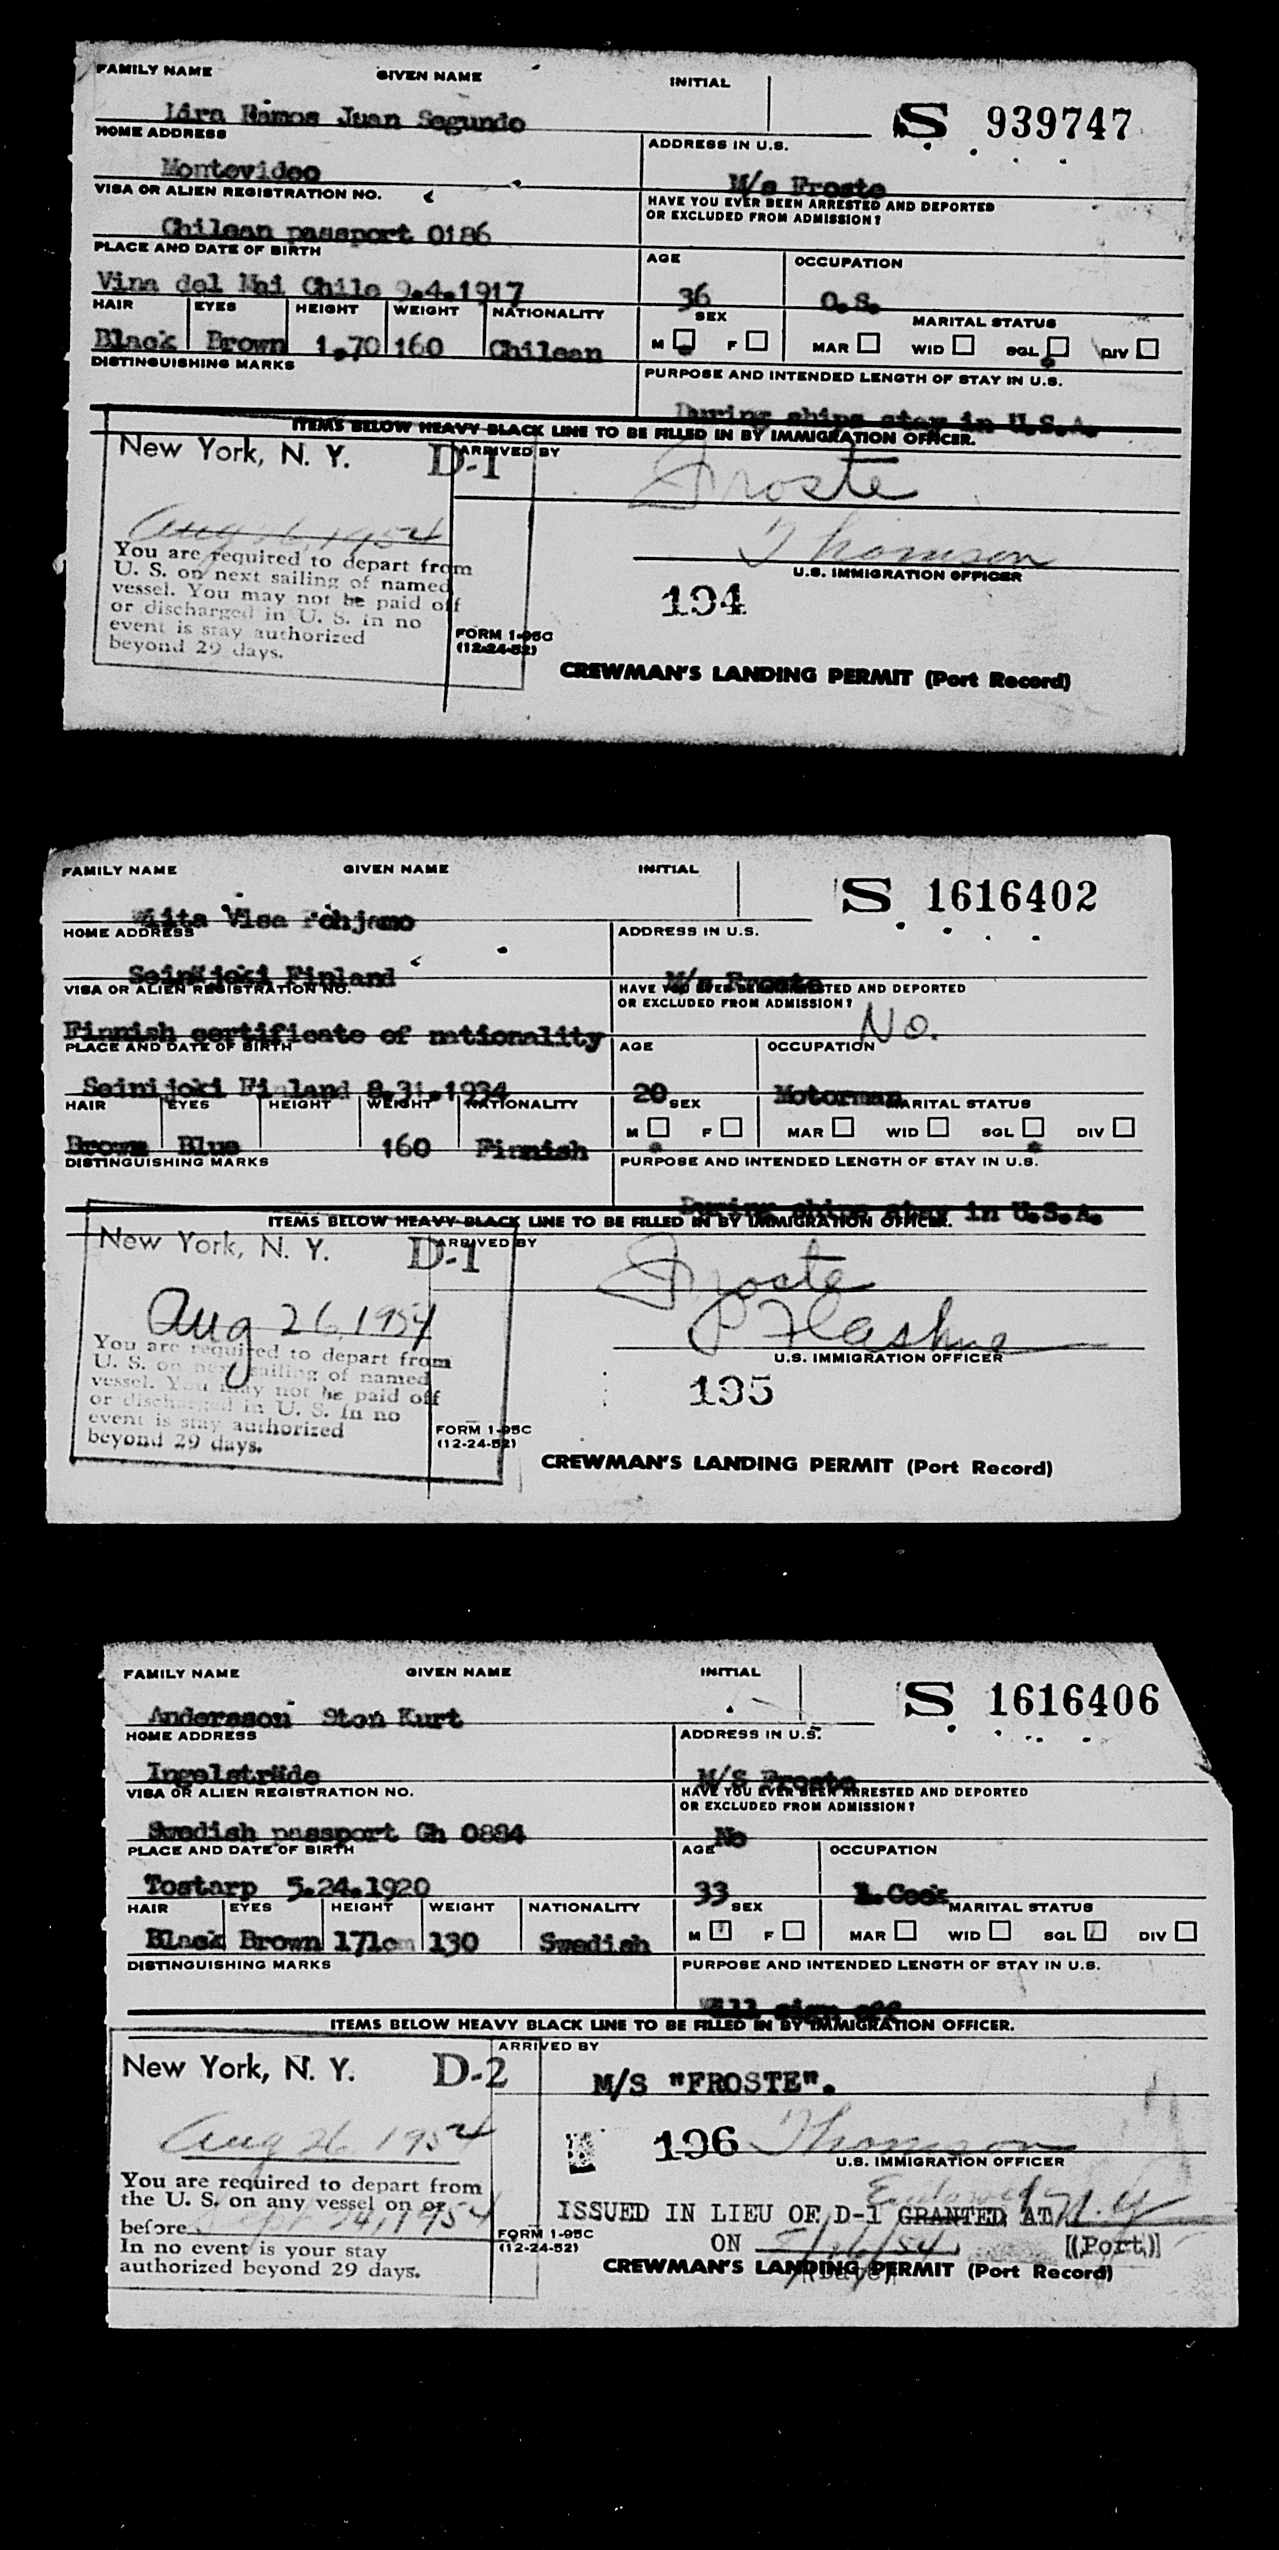 FAMILY NAME GIVEN NAME INITIAL
Lira Ramos Juan Segundo S 939747
HOME ADDRESS ADDRESS IN U.S.
Montevideo M/s Froste
VISA OR ALIEN REGISTRATION NO. HAVE YOU EVER BEEN ARRESTED AND DEPORTED
OR EXCLUDED FROM ADMISSION?
Chilean passport 0186
PLACE AND DATE OF BIRTH AGE OCCUPATION
Vina del Mai Chile 9.4.1917 36 O.S.
HAIR EYES HEIGHT WEIGHT NATIONALITY SEX MARITAL STATUS
Black Brown 1.70 160 Chilean M F MAR WID SGL DIV
DISTINGUISHING MARKS PURPOSE AND INTENDED LENGTH OF STAY IN U.S.
During ships stay in U.S.A.
ITEMS BELOW HEAVY BLACK LINE TO BE FILLED IN BY IMMIGRATION OFFICER.
New York, N. Y. D-1 ARRIVED BY Froste
Aug 26, 1954 Thomson
You are required to depart from
U. S. on next sailing of named
vessel. You may not be paid off
or discharged in U. S. In no
event is stay authorized
beyond 29 days.
U.S. IMMIGRATION OFFICER
194
FORM 1-95C
(12-24-52)
CREWMAN'S LANDING PERMIT (Port Record)
FAMILY NAME GIVEN NAME INITIAL
Wiita Visa Pohjamo S 1616402
HOME ADDRESS ADDRESS IN U.S.
Seinäjoki Finland M/s Froste
VISA OR ALIEN REGISTRATION NO. HAVE YOU EVER BEEN ARRESTED AND DEPORTED
OR EXCLUDED FROM ADMISSION? No.
Finnish certificate of nationality
PLACE AND DATE OF BIRTH AGE OCCUPATION
Seinijoki Finland 8.31.1934 20 Motorman
HAIR EYES HEIGHT WEIGHT NATIONALITY SEX MARITAL STATUS
Brown Blue 160 Finnish M F MAR WID SGL DIV
DISTINGUISHING MARKS PURPOSE AND INTENDED LENGTH OF STAY IN U.S.
During ships stay in U.S.A.
ITEMS BELOW HEAVY BLACK LINE TO BE FILLED IN BY IMMIGRATION OFFICER.
New York, N. Y. D-1 ARRIVED BY Froste
Aug 26, 1954
You are required to depart from
U. S. on next sailing of named
vessel. You may not be paid off
or discharged in U. S. In no
event is stay authorized
beyond 29 days.
U.S. IMMIGRATION OFFICER
195
FORM 1-95C
(12-24-52)
CREWMAN'S LANDING PERMIT (Port Record)
FAMILY NAME GIVEN NAME INITIAL
Andersson Sten Kurt S 1616406
HOME ADDRESS ADDRESS IN U.S.
Ingelsträde M/S Froste
VISA OR ALIEN REGISTRATION NO. HAVE YOU EVER BEEN ARRESTED AND DEPORTED
OR EXCLUDED FROM ADMISSION?
Swedish passport Gh 0884 No
PLACE AND DATE OF BIRTH AGE OCCUPATION
Tostarp 5.24.1920 33 Cook
HAIR EYES HEIGHT WEIGHT NATIONALITY SEX MARITAL STATUS
Black Brown 171cm 130 Swedish M F MAR WID SGL DIV
DISTINGUISHING MARKS PURPOSE AND INTENDED LENGTH OF STAY IN U.S.
Will sign off
ITEMS BELOW HEAVY BLACK LINE TO BE FILLED IN BY IMMIGRATION OFFICER.
New York, N. Y. D-2 ARRIVED BY
M/S "FROSTE".
Aug 26, 1954 196 Thomson
U.S. IMMIGRATION OFFICER
You are required to depart from
the U. S. on any vessel on or
before Sept 24, 1954
In no event is your stay
authorized beyond 29 days.
ISSUED IN LIEU OF D-1 GRANTED AT N.Y.
ON 8/26/54 (Port)
(Date)
FORM 1-95C
(12-24-52)
CREWMAN'S LANDING PERMIT (Port Record)